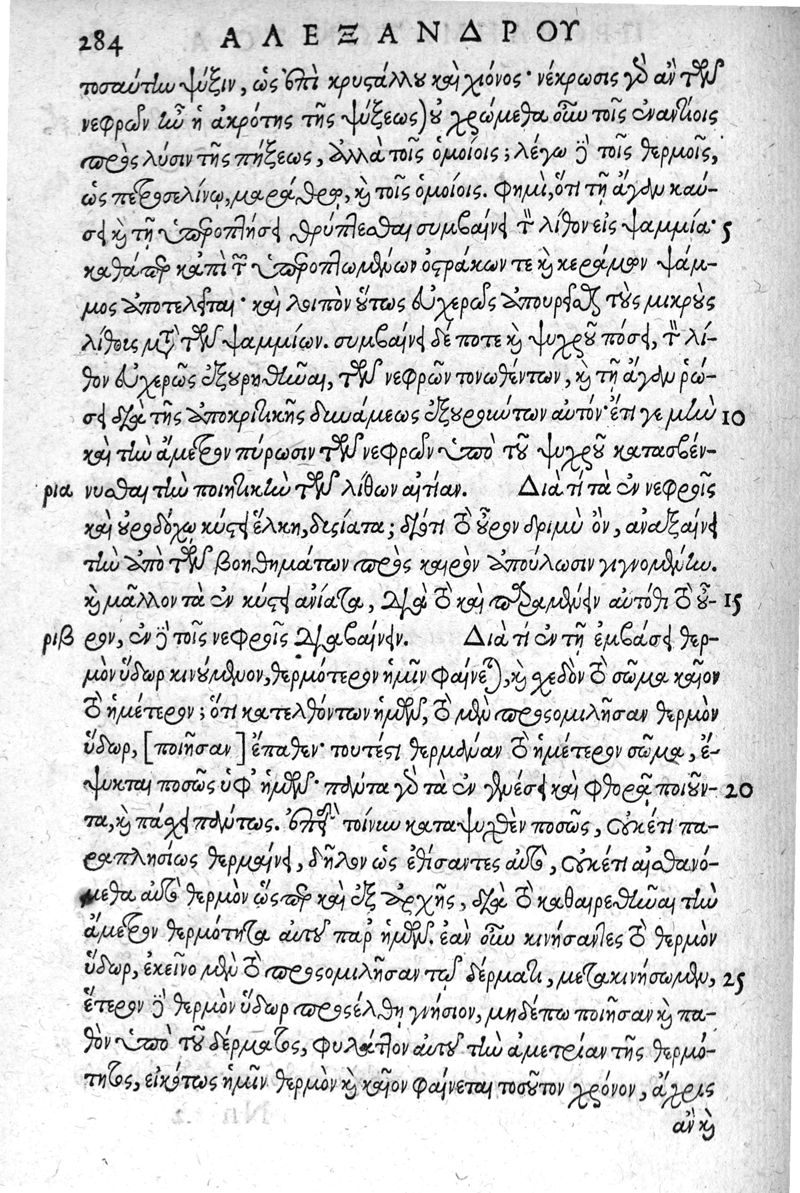 284 ΑΛΕΞΑΝΔΡΟΥ
τοσαύτην ψύξιν, ὡς ἐπὶ κρυστάλλου καὶ χιόνος· νέκρωσις γὰρ ἂν τῶν
νεφρῶν ἦν ἡ ἀκρότης τῆς ψύξεως) οὐ χρώμεθα οὖν τοῖς ἐναντίοις
πρὸς λύσιν τῆς πήξεως, ἀλλὰ τοῖς ὁμοίοις; λέγω δὲ τοῖς θερμοῖς,
ὡς πετροσελίνῳ, μαράθρῳ, καὶ τοῖς ὁμοίοις. Φημὶ, ὅτι τῇ ἄγαν καύ-
σει καὶ τῇ ὑπεροπτήσει θρύπτεσθαι συμβαίνει τὸν λίθον εἰς ψαμμία· 5
καθάπερ κἀπὶ τῶν ὑπεροπτωμένων ὀστράκων τε καὶ κεράμων ψάμ-
μος ἀποτελεῖται· καὶ λοιπὸν οὕτως εὐχερῶς ἀπουρεῖσθαι τοὺς μικροὺς
λίθους μετὰ τῶν ψαμμίων. συμβαίνει δέ ποτε καὶ ψυχροῦ πόσει, τὸν λί-
θον εὐχερῶς ἐξουρηθῆναι, τῶν νεφρῶν τονωθέντων, καὶ τῇ ἄγαν ῥώ-
σει διὰ τῆς ἀποκριτικῆς δυνάμεως ἐξουρούντων αὐτόν· ἔτι γε μὴν 10
καὶ τὴν ἄμετρον πύρωσιν τῶν νεφρῶν ὑπὸ τοῦ ψυχροῦ κατασβέν-
ρια νυσθαι τὴν ποιητικὴν τῶν λίθων αἰτίαν. Διὰ τί τὰ ἐν νεφροῖς
καὶ οὐροδόχῳ κύστει ἕλκη, δυσίατα; διότι τὸ οὖρον δριμὺ ὂν, ἀναξαίνει
τὴν ἀπὸ τῶν βοηθημάτων πρὸς καιρὸν ἀπούλωσιν γιγνομένην.
καὶ μᾶλλον τὰ ἐν κύστει ἀνίατα, διὰ τὸ καὶ παραμένειν αὐτόθι τὸ οὖ- 15
ριβ ρον, ἐν δὲ τοῖς νεφροῖς διαβαίνειν. Διὰ τί ἐν τῇ ἐμβάσει θερ-
μὸν ὕδωρ κινούμενον, θερμότερον ἡμῖν φαίνεται, καὶ σχεδὸν τὸ σῶμα καῖον
τὸ ἡμέτερον; ὅτι κατελθόντων ἡμῶν, τὸ μὲν προσομιλῆσαν θερμὸν
ὕδωρ, [ποιῆσαν] ἔπαθεν· τουτέστι θερμᾶναν τὸ ἡμέτερον σῶμα, ἔ-
ψυκται ποσῶς ὑφ’ ἡμῶν· πάντα γὰρ τὰ ἐν γενέσει καὶ φθορᾷ ποιοῦν- 20
τα, καὶ πάσχει πάντως. ἐπεὶ τοίνυν καταψυχθὲν ποσῶς, οὐκέτι πα-
ραπλησίως θερμαίνει, δῆλον ὡς ἐθίσαντες αὐτὸ, οὐκέτι αἰσθανό-
μεθα αὐτὸ θερμὸν ὥσπερ καὶ ἐξ ἀρχῆς, διὰ τὸ καθαιρεθῆναι τὴν
ἄμετρον θερμότητα αὐτοῦ παρ’ ἡμῶν. ἐὰν οὖν κινήσαντες τὸ θερμὸν
ὕδωρ, ἐκεῖνο μὲν τὸ προσομιλῆσαν τῷ δέρματι, μετακινήσωμεν, 25
ἕτερον δὲ θερμὸν ὕδωρ προσέλθῃ γνήσιον, μηδέπω ποιῆσαν καὶ πα-
θὸν ὑπὸ τοῦ δέρματος, φυλάττον αὐτοῦ τὴν ἀμετρίαν τῆς θερμό-
τητος, εἰκότως ἡμῖν θερμὸν καὶ καῖον φαίνεται τοσοῦτον χρόνον, ἄχρις
ἂν καὶ